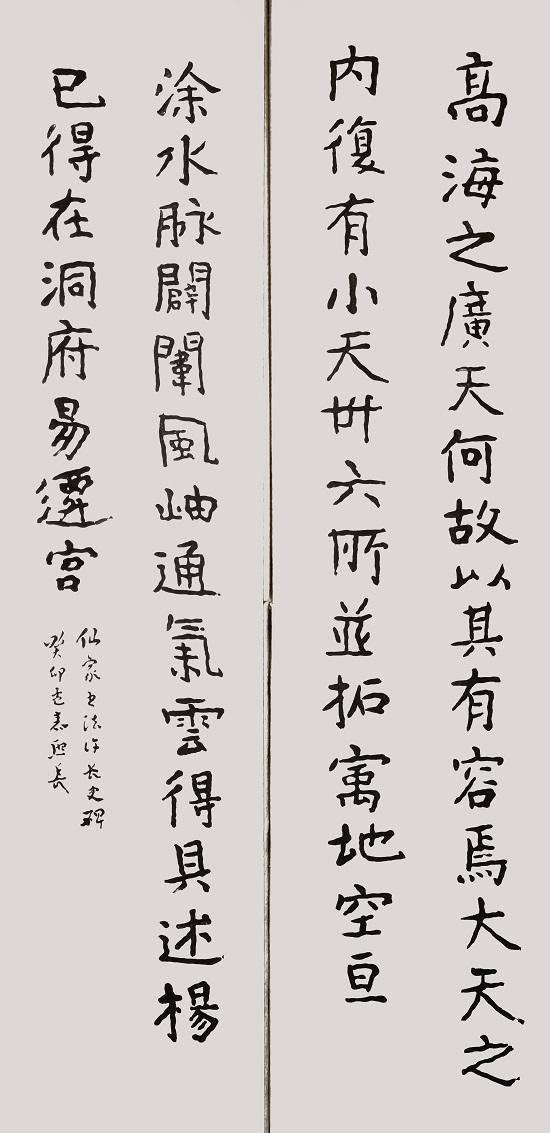 高海之廣天何故以其有容焉大天之
内復有小天卅六所並拓寓地空亘
涂水脉闢闡風岫通氣雲得具述楊
已得在洞府易遷宮
仙家書法許長史碑
癸卯